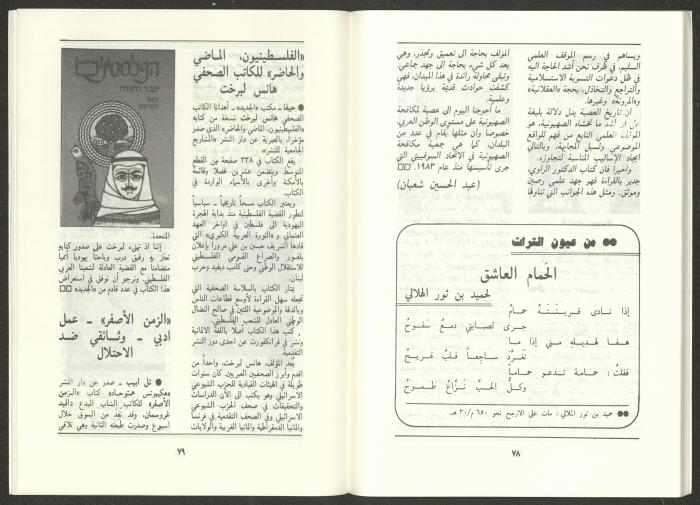 ويساهم في رسم الموقف العلمي
السليم، في ظرف نحن أشد الحاجة اليه
في ظل دعوات التسوية الاستسلامية
والتراجع والتخاذل، بحجة «العقلانية»
و«المرونة» وغيرها.
ان تاريخ العصبة يدل دلالة بليغة
الموضوعي ولسبل المجابهة، وبالتالي
ايجاد الأساليب المناسبة لتجاوزه.
واخيرا فان كتاب الدكتور الراوي،
جدير بالقراءة فهو جهد علمي رصين
وموثق. ومثل هذه الجوانب التي تناولها
المؤلف بحاجة الى تعميق وتجذر، وهي
بعد كل شيء بحاجة الى جهد جماعي.
وتبقى محاولة رائدة في هذا الميدان، فهي
كشفت حوادث قديمة برؤيا جديدة
وعلمية.
ما أحوجنا اليوم الى عصبة لمكافحة
الصهيونية على مستوى الوطن العربي،
خصوصا وان مثلها يقام في عدد من
البلدان، كما هي جمعية مكافحة
الصهيونية في الاتحاد السوفييتي التي
جرى تأسيسها منذ عام ١٩٨٣.
(عبد الحسين شعبان)
من عيون التراث
الحَمام العاشق
لحميد بن ثور الهلالي
إذا نادى قرينَتَهُ حمامُ
جرى لصبابتي دمعٌ سَفوحُ
هفا لهديلهِ مني إذا ما
تغرّدَ ساجعاً قلبٌ قريحُ
فقلتُ: حمامة تدعو حماماً
وكلُّ الحبِّ نزّاعٌ طموحُ
حميد بن ثور الهلالي: مات على الارجح نحو ٦٥٠م/٣٠ هـ
٧٨
«الفلسطينيون، الماضي
والحاضر» للكاتب الصحفي
هانس لبرخت
حيفا ـ مكتب «الجديد» ـ أهدانا الكاتب
الصحفي هانس لبرخت نسخة من كتابه
«الفلسطينيون، الماضي والحاضر» الذي صدر
مؤخرا، بالعبرية عن دار النشر «المشاريع
الجامعية للنشر».
يقع الكتاب في ٣٣٨ صفحة من القطع
المتوسط ويتضمن عشرين فصلا وقائمة
بالأمكنة واخرى بالأسماء الواردة في
الكتاب.
ويعتبر الكتاب مسحاً تاريخياً ـ سياسياً
لتطور القضية الفلسطينية منذ بداية الهجرة
اليهودية الى فلسطين في اواخر العهد
العثماني و«الثورة العربية الكبرى» التي
قادها الشريف حسين بن علي مروراً بإعلان
بلفور والصراع القومي الفلسطيني
للاستقلال الوطني وحتى كامب ديفيد وحرب
لبنان.
يمتاز الكتاب بالسلاسة الصحفية التي
تجعله سهل القراءة لأوسع قطاعات الناس
وبالدقة والموضوعية اللتين في صالح النضال
الوطني العادل للشعب الفلسطيني.
كتب هذا الكتاب أصلا باللغة الالمانية
ونشر في فرانكفورت عن احدى دور النشر
التقدمية.
يُعدّ المؤلف، هانس لبرخت، واحداً من
اقدم وأبرز الصحفيين العبريين. كان سنوات
طويلة في الهيئات القيادية للحزب الشيوعي
الاسرائيلي وهو يكتب الى الآن الدراسات
والتحقيقات في صحف الحزب الشيوعي
الاسرائيلي وفي الصحف التقدمية في فرنسا
والمانيا الدمقراطية والمانيا الغربية والولايات
הפלסטינים
עבר והווה
הנס
לברכט
المتحدة.
إننا اذ نهنىء لبرخت على صدور كتابه
نعتز به رفيق درب وباحثا يهوديا أمميا
متضامنا مع القضية العادلة لشعبنا العربي
الفلسطيني. ونرجو أن نوفق في استعراض
هذا الكتاب في عدد قادم من «الجديد»
«الزمن الأصفر» ـ عمل
ادبي ـ وثائقي ضد
الاحتلال
تل ابيب ـ صدر عن دار النشر
«هكيبوتس همئوحاد» كتاب «الزمن
الأصفر» للكاتب الشاب المبدع دافيد
غروسمان. وقد نفد من السوق خلال
اسبوع وصدرت طبعته الثانية وهي تلاقي
٧٩